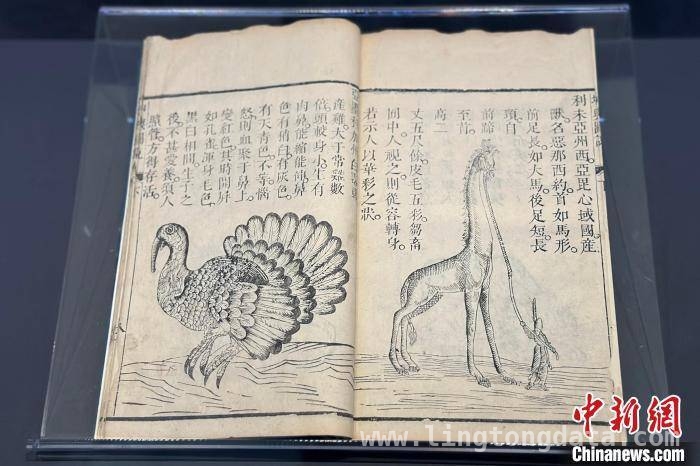 利未亞州西亞毘心域國產
獸名惡那西約首如馬形。
前足長如大馬後足短長
頸自
前蹄
至首
高二
丈五尺餘皮毛五彩芻畜
囿中人視之則從容轉身。
若示人以華彩之狀
亞墨利加州白露國
產雞大于常雞數
倍頭較身小生有
肉鼻能縮能伸鼻
色有稍白有灰色
有天青色不等惱
怒則血聚于鼻上
變紅色其時開屏
如孔雀渾身毛色
黑白相間生子之
後不甚愛養須人
照管方得存活
www.lingtongdata.com
中新网
Chinanews.com